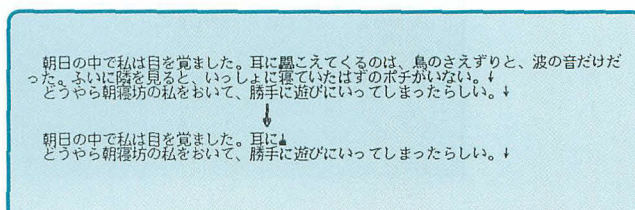 朝日の中で私は目を覚ました。耳に聞こえてくるのは、鳥のさえずりと、波の音だけだ
った。ふいに隣を見ると、いっしょに寝ていたはずのポチがいない。↓
どうやら朝寝坊の私をおいて、勝手に遊びにいってしまったらしい。↓
↓
朝日の中で私は目を覚ました。耳に↓
どうやら朝寝坊の私をおいて、勝手に遊びにいってしまったらしい。↓